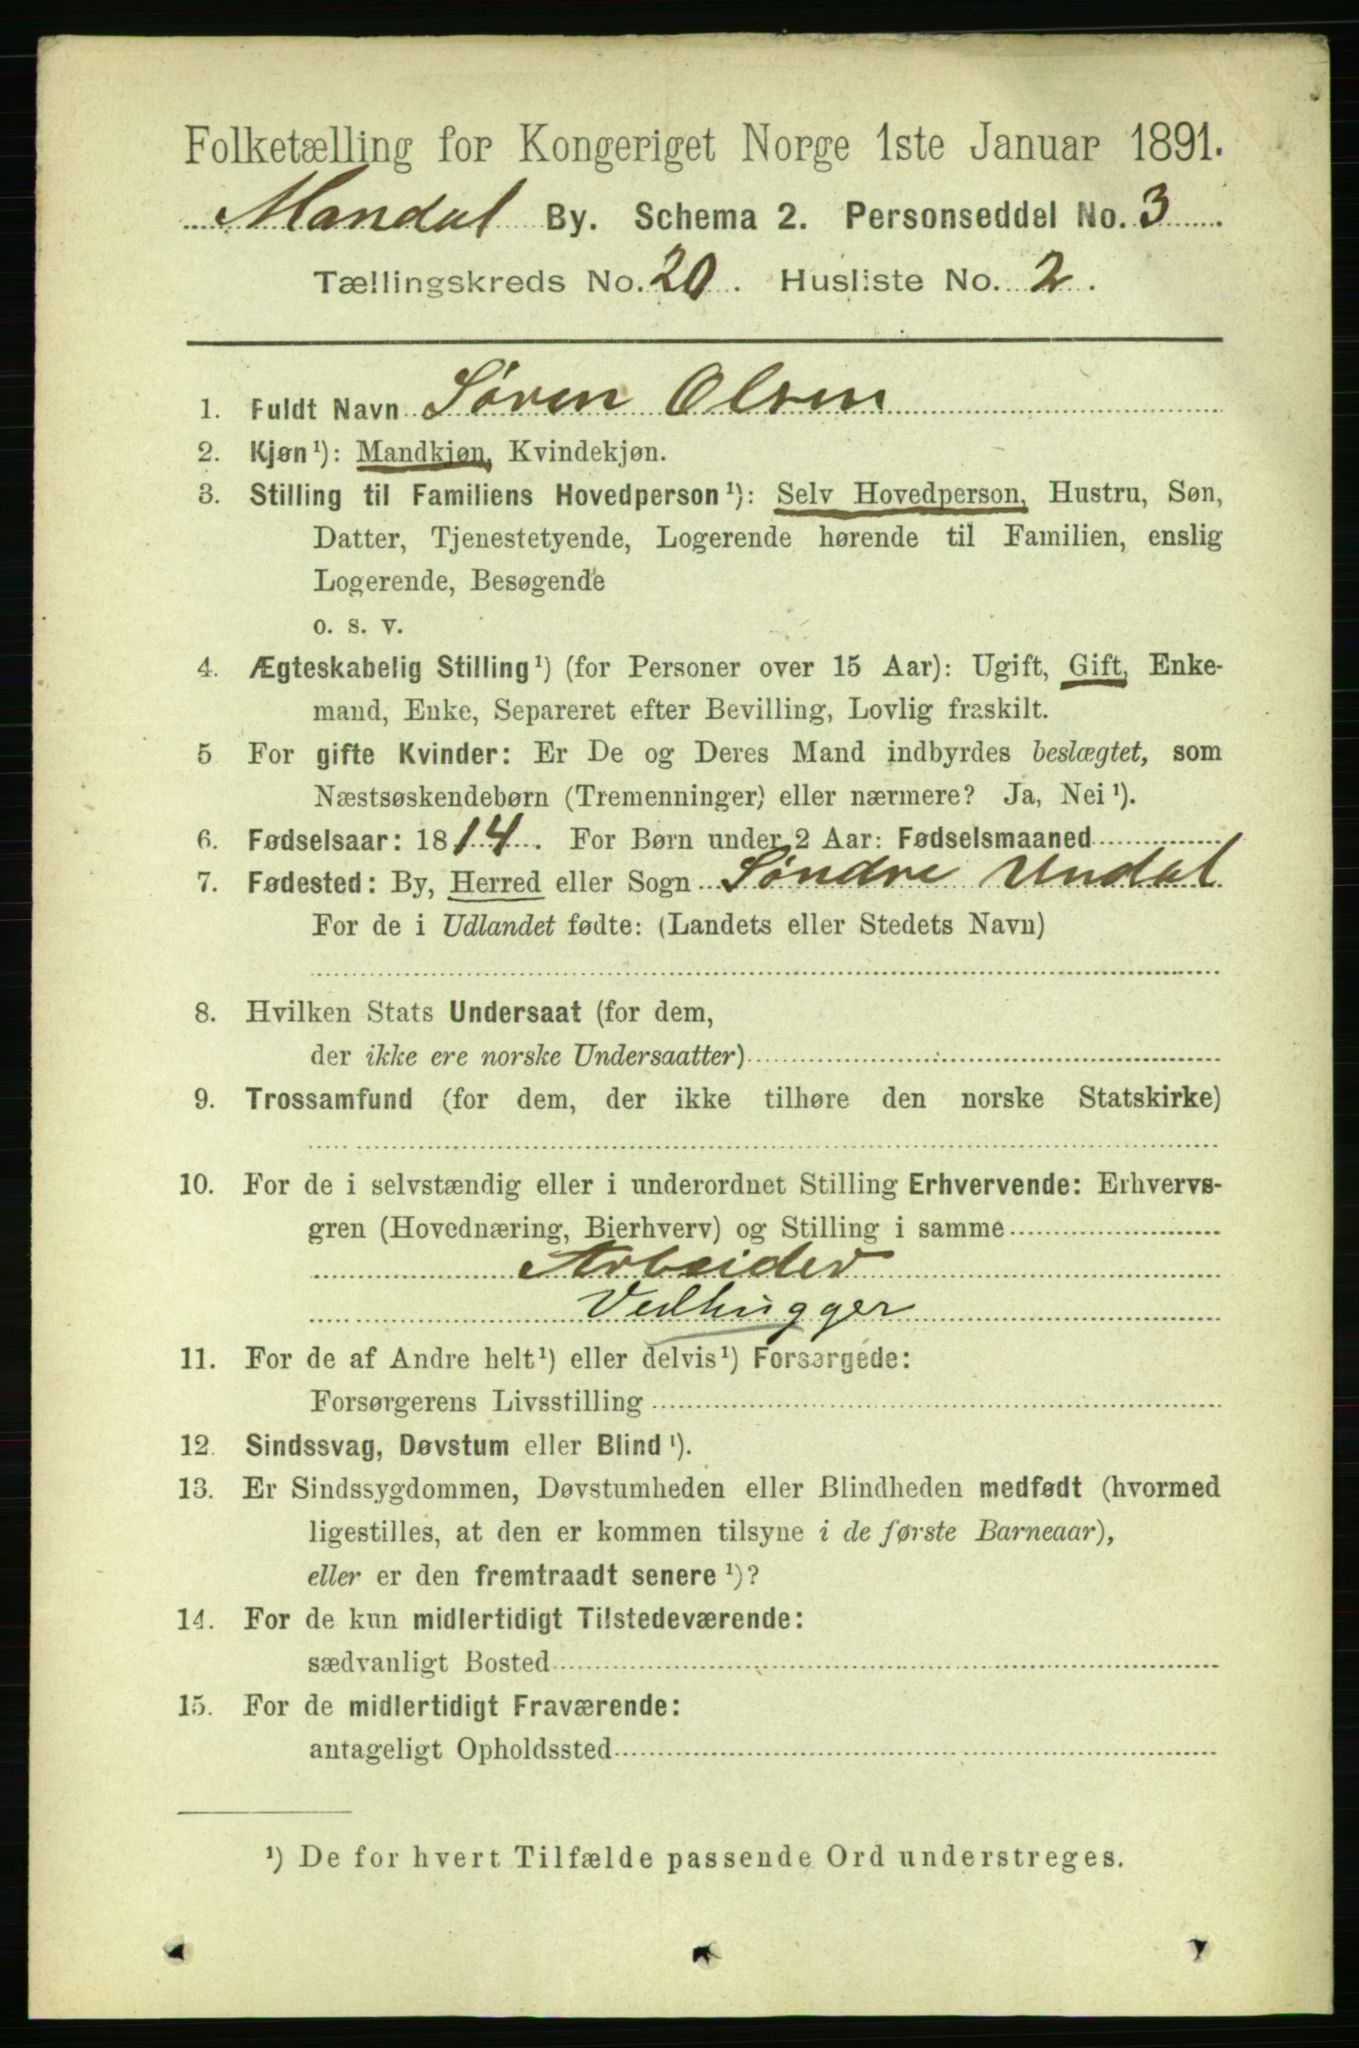 Folketælling for Kongeriget Norge 1ste Januar 1891.
Mandal By. Schema 2. Personseddel No. 3
Tællingskreds No. 20. Husliste No. 2.
1. Fuldt Navn Søren Olsen
2. Kjøn¹): Mandkjøn, Kvindekjøn.
3. Stilling til Familiens Hovedperson¹): Selv Hovedperson, Hustru, Søn,
Datter, Tjenestetyende, Logerende hørende til Familien, enslig
Logerende, Besøgende
o. s. v.
4. Ægteskabelig Stilling¹) (for Personer over 15 Aar): Ugift, Gift, Enke-
mand, Enke, Separeret efter Bevilling, Lovlig fraskilt.
5 For gifte Kvinder: Er De og Deres Mand indbyrdes beslægtet, som
Næstsøskendebørn (Tremenninger) eller nærmere? Ja, Nei¹).
6. Fødselsaar: 1814. For Børn under 2 Aar: Fødselsmaaned
7. Fødested: By, Herred eller Sogn Søndre Undal
For de i Udlandet fødte: (Landets eller Stedets Navn)
8. Hvilken Stats Undersaat (for dem,
der ikke ere norske Undersaatter)
9. Trossamfund (for dem, der ikke tilhøre den norske Statskirke)
10. For de i selvstændig eller i underordnet Stilling Erhvervende: Erhvervs-
gren (Hovednæring, Bierhverv) og Stilling i samme
Arbeider
Vedhugger
11. For de af Andre helt¹) eller delvis¹) Forsørgede:
Forsørgerens Livsstilling
12. Sindssvag, Døvstum eller Blind¹).
13. Er Sindssygdommen, Døvstumheden eller Blindheden medfødt (hvormed
ligestilles, at den er kommen tilsyne i de første Barneaar),
eller er den fremtraadt senere¹)?
14. For de kun midlertidigt Tilstedeværende:
sædvanligt Bosted
15. For de midlertidigt Fraværende:
antageligt Opholdssted
¹) De for hvert Tilfælde passende Ord understreges.